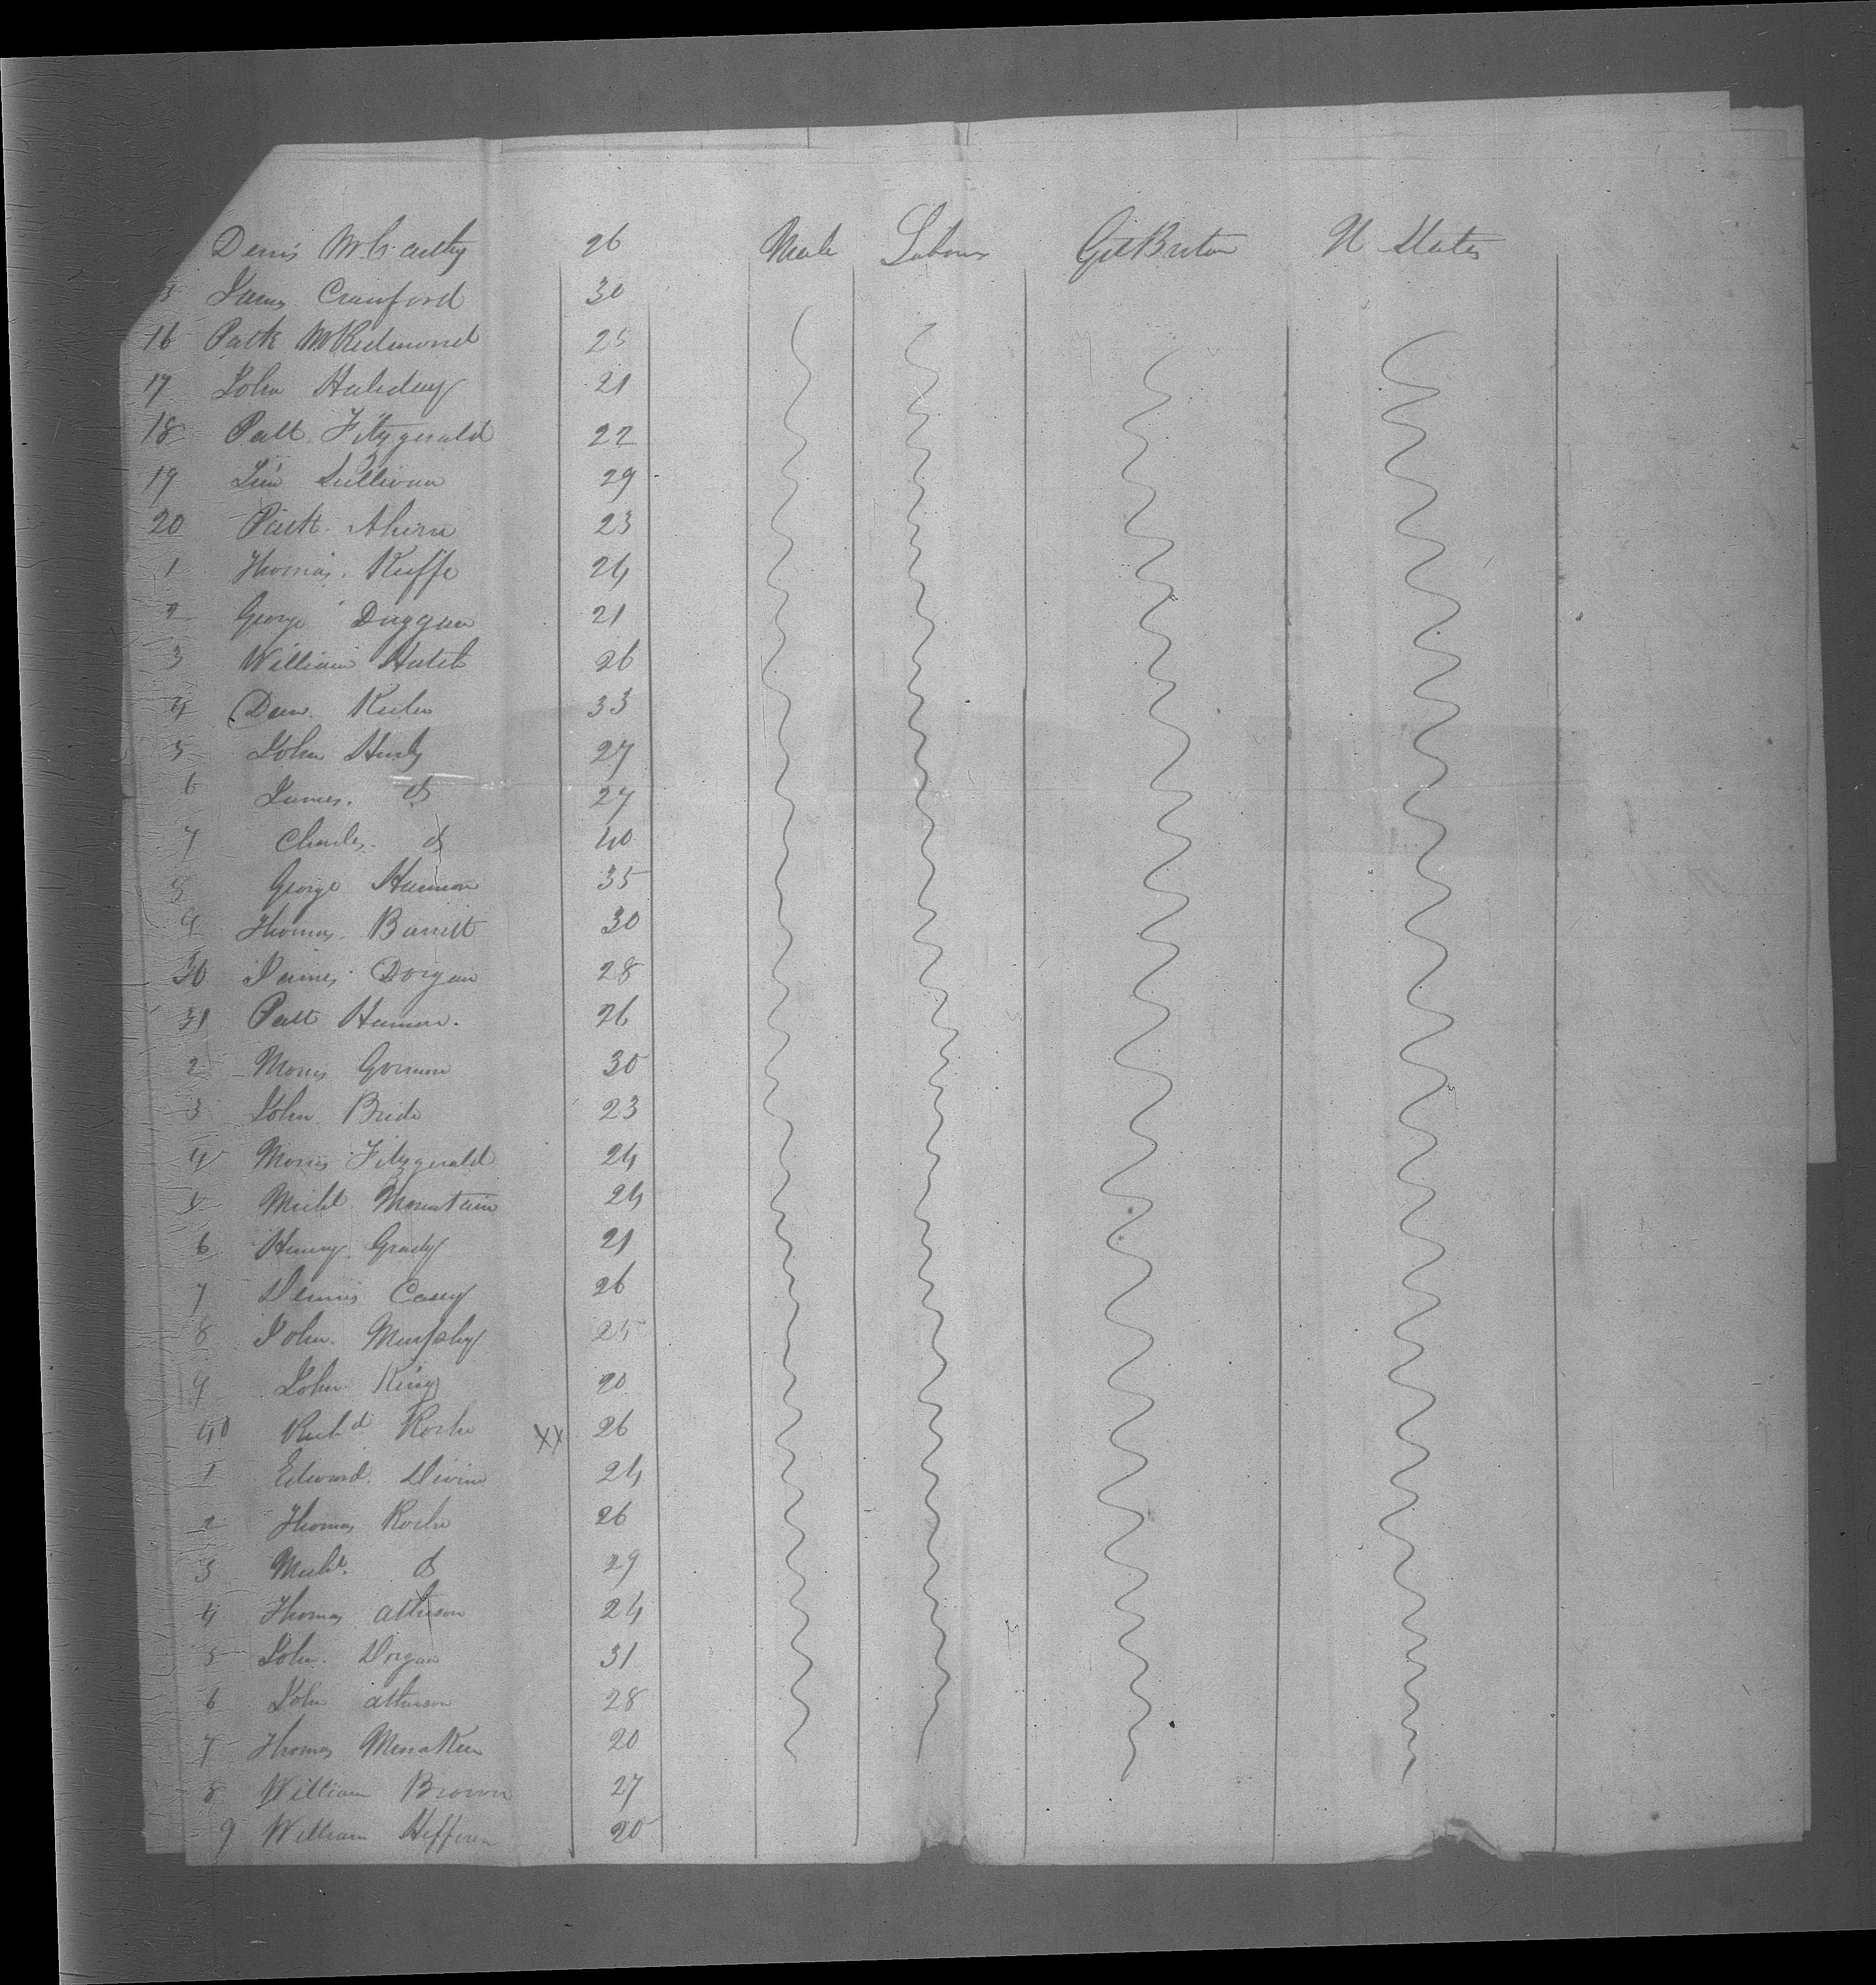 Denis McCarthy 26 Male Labour Gt Britain U States
5 James Crawford 30
16 Patk McRedmond 25
17 John Haliday 21
18 Patt Fitzgerald 22
19 Tim Sullivan 29
20 Patk Ahern 23
1 Thomas Keiffe 24
2 George Duggan 21
3 William Hutch 26
4 Danl 33
5 John Hurly 27
6 James do 27
7 Charles do 40
8 George Hannon 35
9 Thomas Barrett 30
30 James Dorgan 28
31 Patt Hannon 26
2 Morris Gorman 30
3 John Bride 23
4 Morris Fitzgerald 24
5 Michl Mountain 24
6 Henry Grady 21
7 Dennis Casey 26
8 John Murphy 25
9 John King 20
40 Richd Roche XX 26
1 Edward Divine 24
2 Thomas Roche 26
3 Michl do 29
4 Thomas Atkinson 24
5 John Dorgan 31
6 John Atkinson 28
7 Thomas 20
8 William Brown 27
9 William Hefferen 20